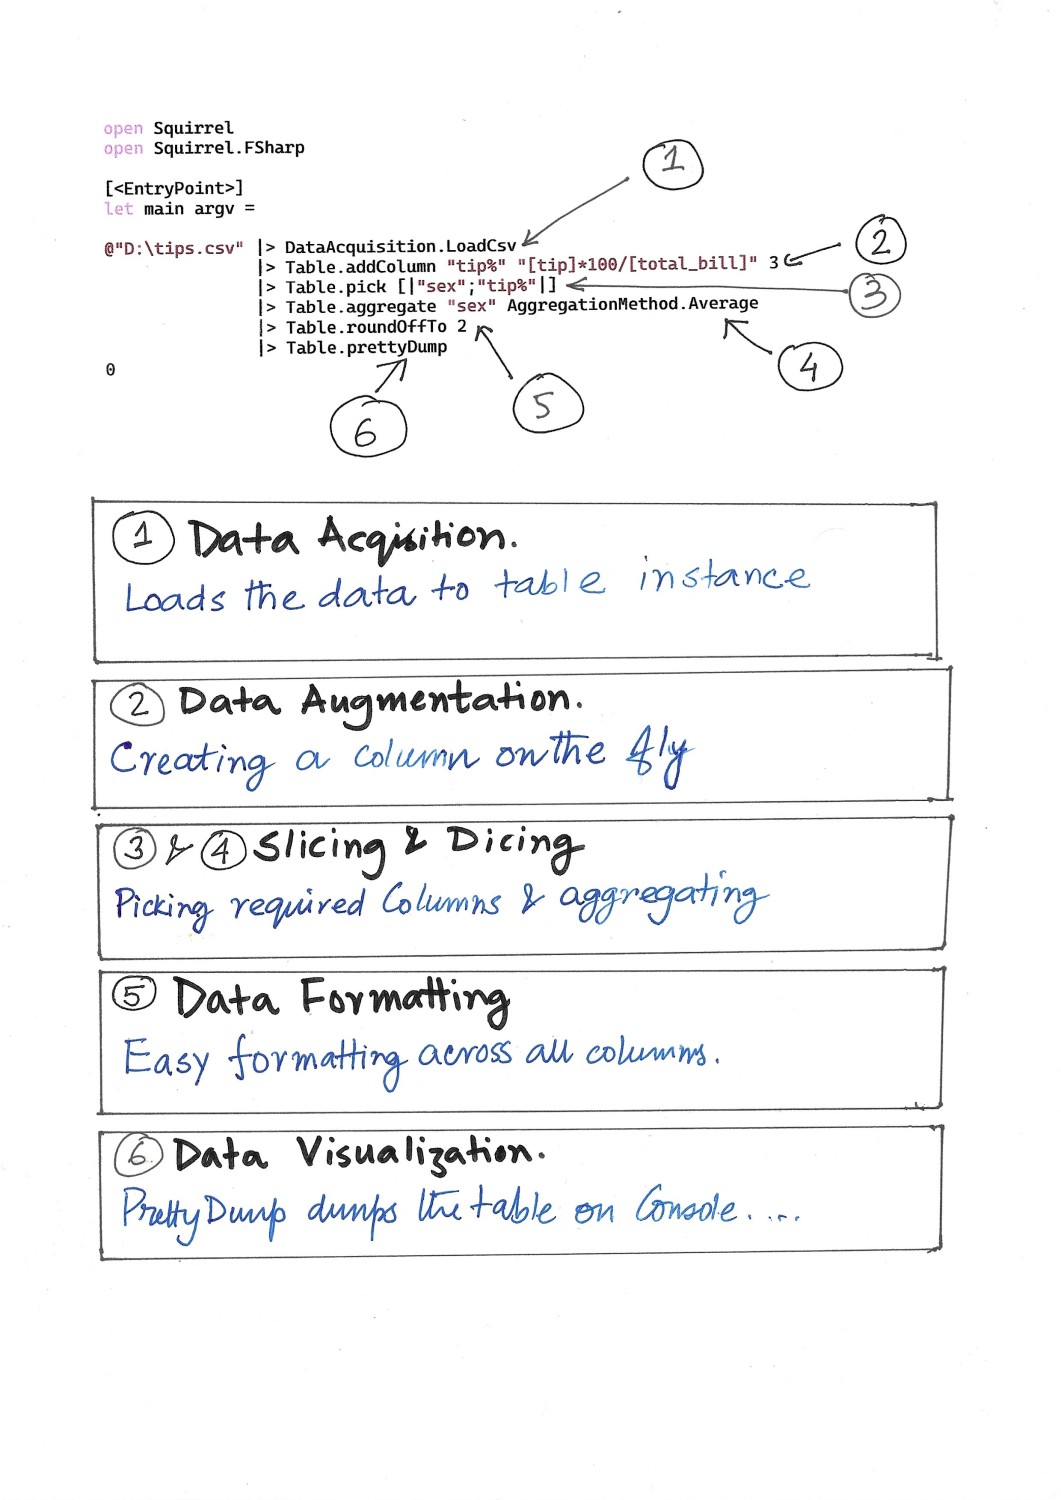 open Squirrel
open Squirrel.FSharp
[<EntryPoint>]
let main argv =
@"D:\tips.csv" |> DataAcquisition.LoadCsv
|> Table.addColumn "tip%" "[tip]*100/[total_bill]" 3
|> Table.pick [|"sex";"tip%"|]
|> Table.aggregate "sex" AggregationMethod.Average
|> Table.roundOffTo 2
|> Table.prettyDump
0
1
2
3
4
5
6
1 Data Acqisition.
Loads the data to table instance
2 Data Augmentation.
Creating a column on the fly
3 & 4 Slicing & Dicing
Picking required Columns & aggregating
5 Data Formatting
Easy formatting across all columns.
6 Data Visualization.
PrettyDump dumps the table on Console....